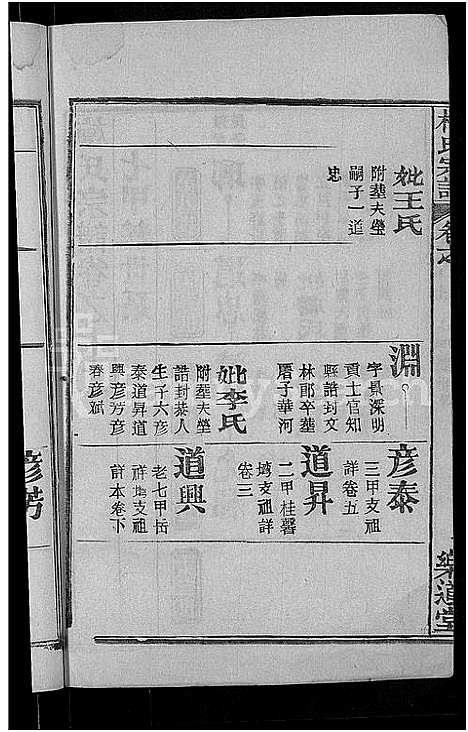 氏宗譜
卷之
樂道堂
妣王氏
附塟夫塋
嗣子一道
忠
淵
字景深明
貢士官知
縣誥封文
林郎卒塟
厝子華河
妣李氏
附塟夫塋
誥封恭人
生子六彦
泰道昇道
興彦芳彦
春彦斌
彦泰
三甲支祖
詳卷五
道昇
二甲桂馨
塆支祖詳
卷三
道興
老七甲岳
祥塆支祖
詳本卷下
彦芳